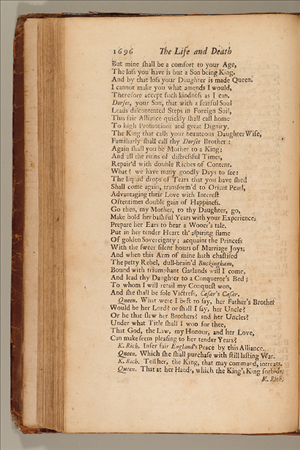 1696 The Life and Death
But mine shall be a comfort to your Age,
The loss you have is but a Son being King,
And by that loss your Daughter is made Queen.
I cannot make you what amends I would,
Therefore accept such kindness as I can.
Dorset, your Son, that with a fearful Soul
Leads discontented Steps in Foreign Soil,
This fair Alliance quickly shall call home
To high Promotions and great Dignity.
The King that calls your beauteous Daughter Wife,
Familiarly shall call thy Dorset Brother:
Again shall you be Mother to a King;
And all the ruins of distressful Times,
Repair'd with double Riches of Content.
What! we have many goodly Days to see:
The liquid drops of Tears that you have shed
Shall come again, transform'd to Orient Pearl,
Advantaging their Love with Interest
Oftentimes double gain of Happiness.
Go then, my Mother, to thy Daughter, go,
Make bold her bashful Years with your Experience,
Prepare her Ears to hear a Wooer's tale.
Put in her tender Heart th' aspiring flame
Of golden Sovereignty; acquaint the Princess
With the sweet silent hours of Marriage Joys;
And when this Arm of mine hath chastised
The petty Rebel, dull-brain'd Buckingham,
Bound with triumphant Garlands will I come,
And lead thy Daughter to a Conqueror's Bed;
To whom I will retail my Conquest won,
And she shall be sole Victress, Cæsar's Cæsar.
Queen. What were I best to say, her Father's Brother
Would be her Lord? or shall I say, her Uncle?
Or he that slew her Brothers and her Uncles?
Under what Title shall I woo for thee,
That God, the Law, my Honour, and her Love,
Can make seem pleasing to her tender Years?
K. Rich. Infer fair England's Peace by this Alliance.
Queen. Which she shall purchase with still lasting War.
K. Rich. Tell her, the King, that may command, intreats.
Queen. That at her Hands, which the King's King forbids.
K. Rich.